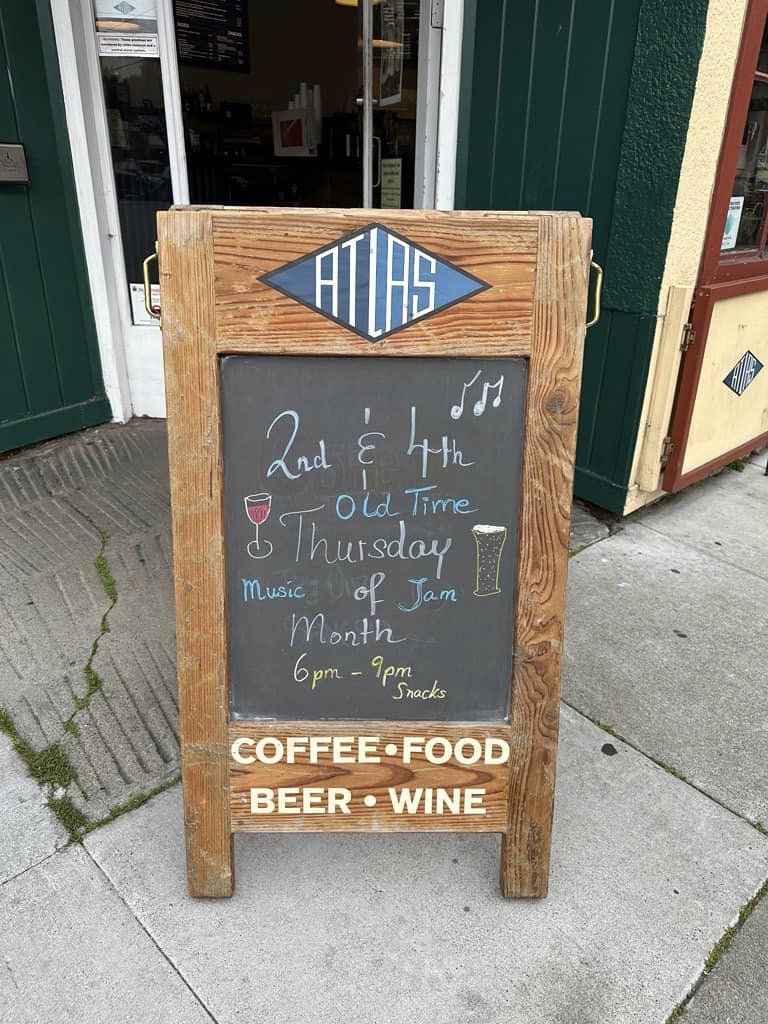 ATLAS
SNACKS
ATLAS
2nd & 4th
Old Time
Thursday
Music of Jam
Month
6pm - 9pm
Snacks
COFFEE • FOOD
BEER • WINE
ATLAS